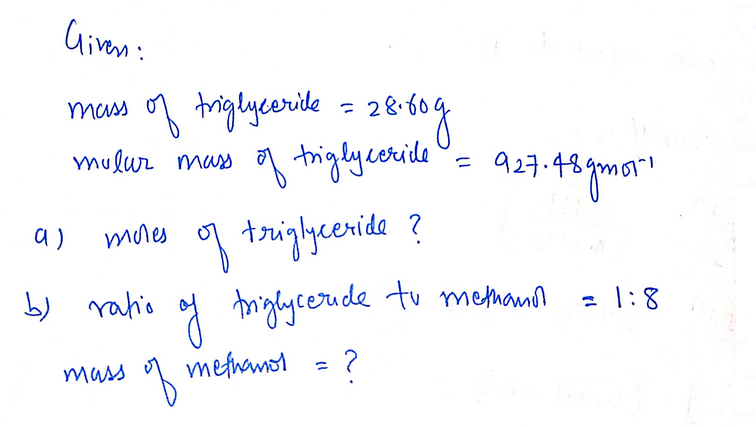 Given:
mass of triglyceride = 28.60g
molar mass of triglyceride = 927.48gmol⁻¹
a) moles of triglyceride ?
b) ratio of triglyceride to methanol = 1:8
mass of methanol = ?